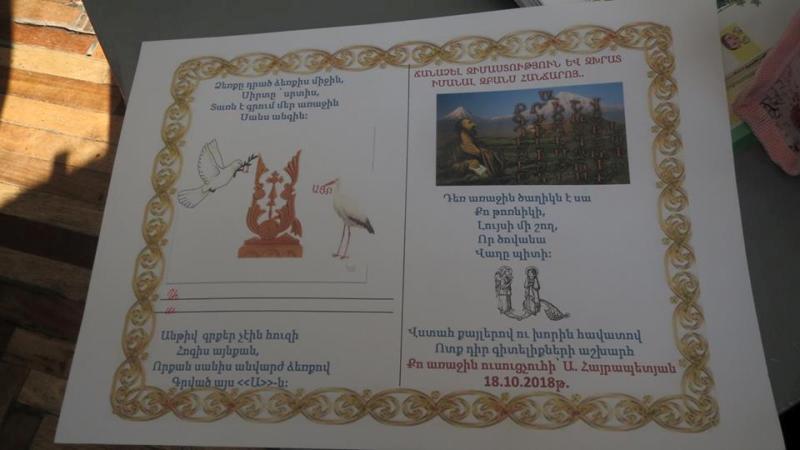 Ձեռքը դրած ձեռքիս միջին,
Սիրտը՝ սրտիս,
Տառն է գրում մեր առաջին
Սանս անգին։
ԱԲԲ
Անթիվ գրքեր չէին հուզի
Հոգիս այնքան,
Որքան սանիս անվարժ ձեռքով
Գրված այս <<Ա>>-ն։
ՃԱՆԱՉԵԼ ԶԻՄԱՍՏՈՒԹՅՈՒՆ ԵՎ ԶԽՐԱՏ
ԻՄԱՆԱԼ ԶԲԱՆՍ ՀԱՆՃԱՐՈՅ..
Դեռ առաջին ծաղիկն է սա
Քո թոռնիկի,
Լույսի մի շող,
Որ ծովանա
Վաղը պիտի։
Վստահ քայլերով ու խորին հավատով
Ոտք դիր գիտելիքների աշխարհ
Քո առաջին ուսուցչուհի՝ Ա. Հայրապետյան
18.10.2018թ.